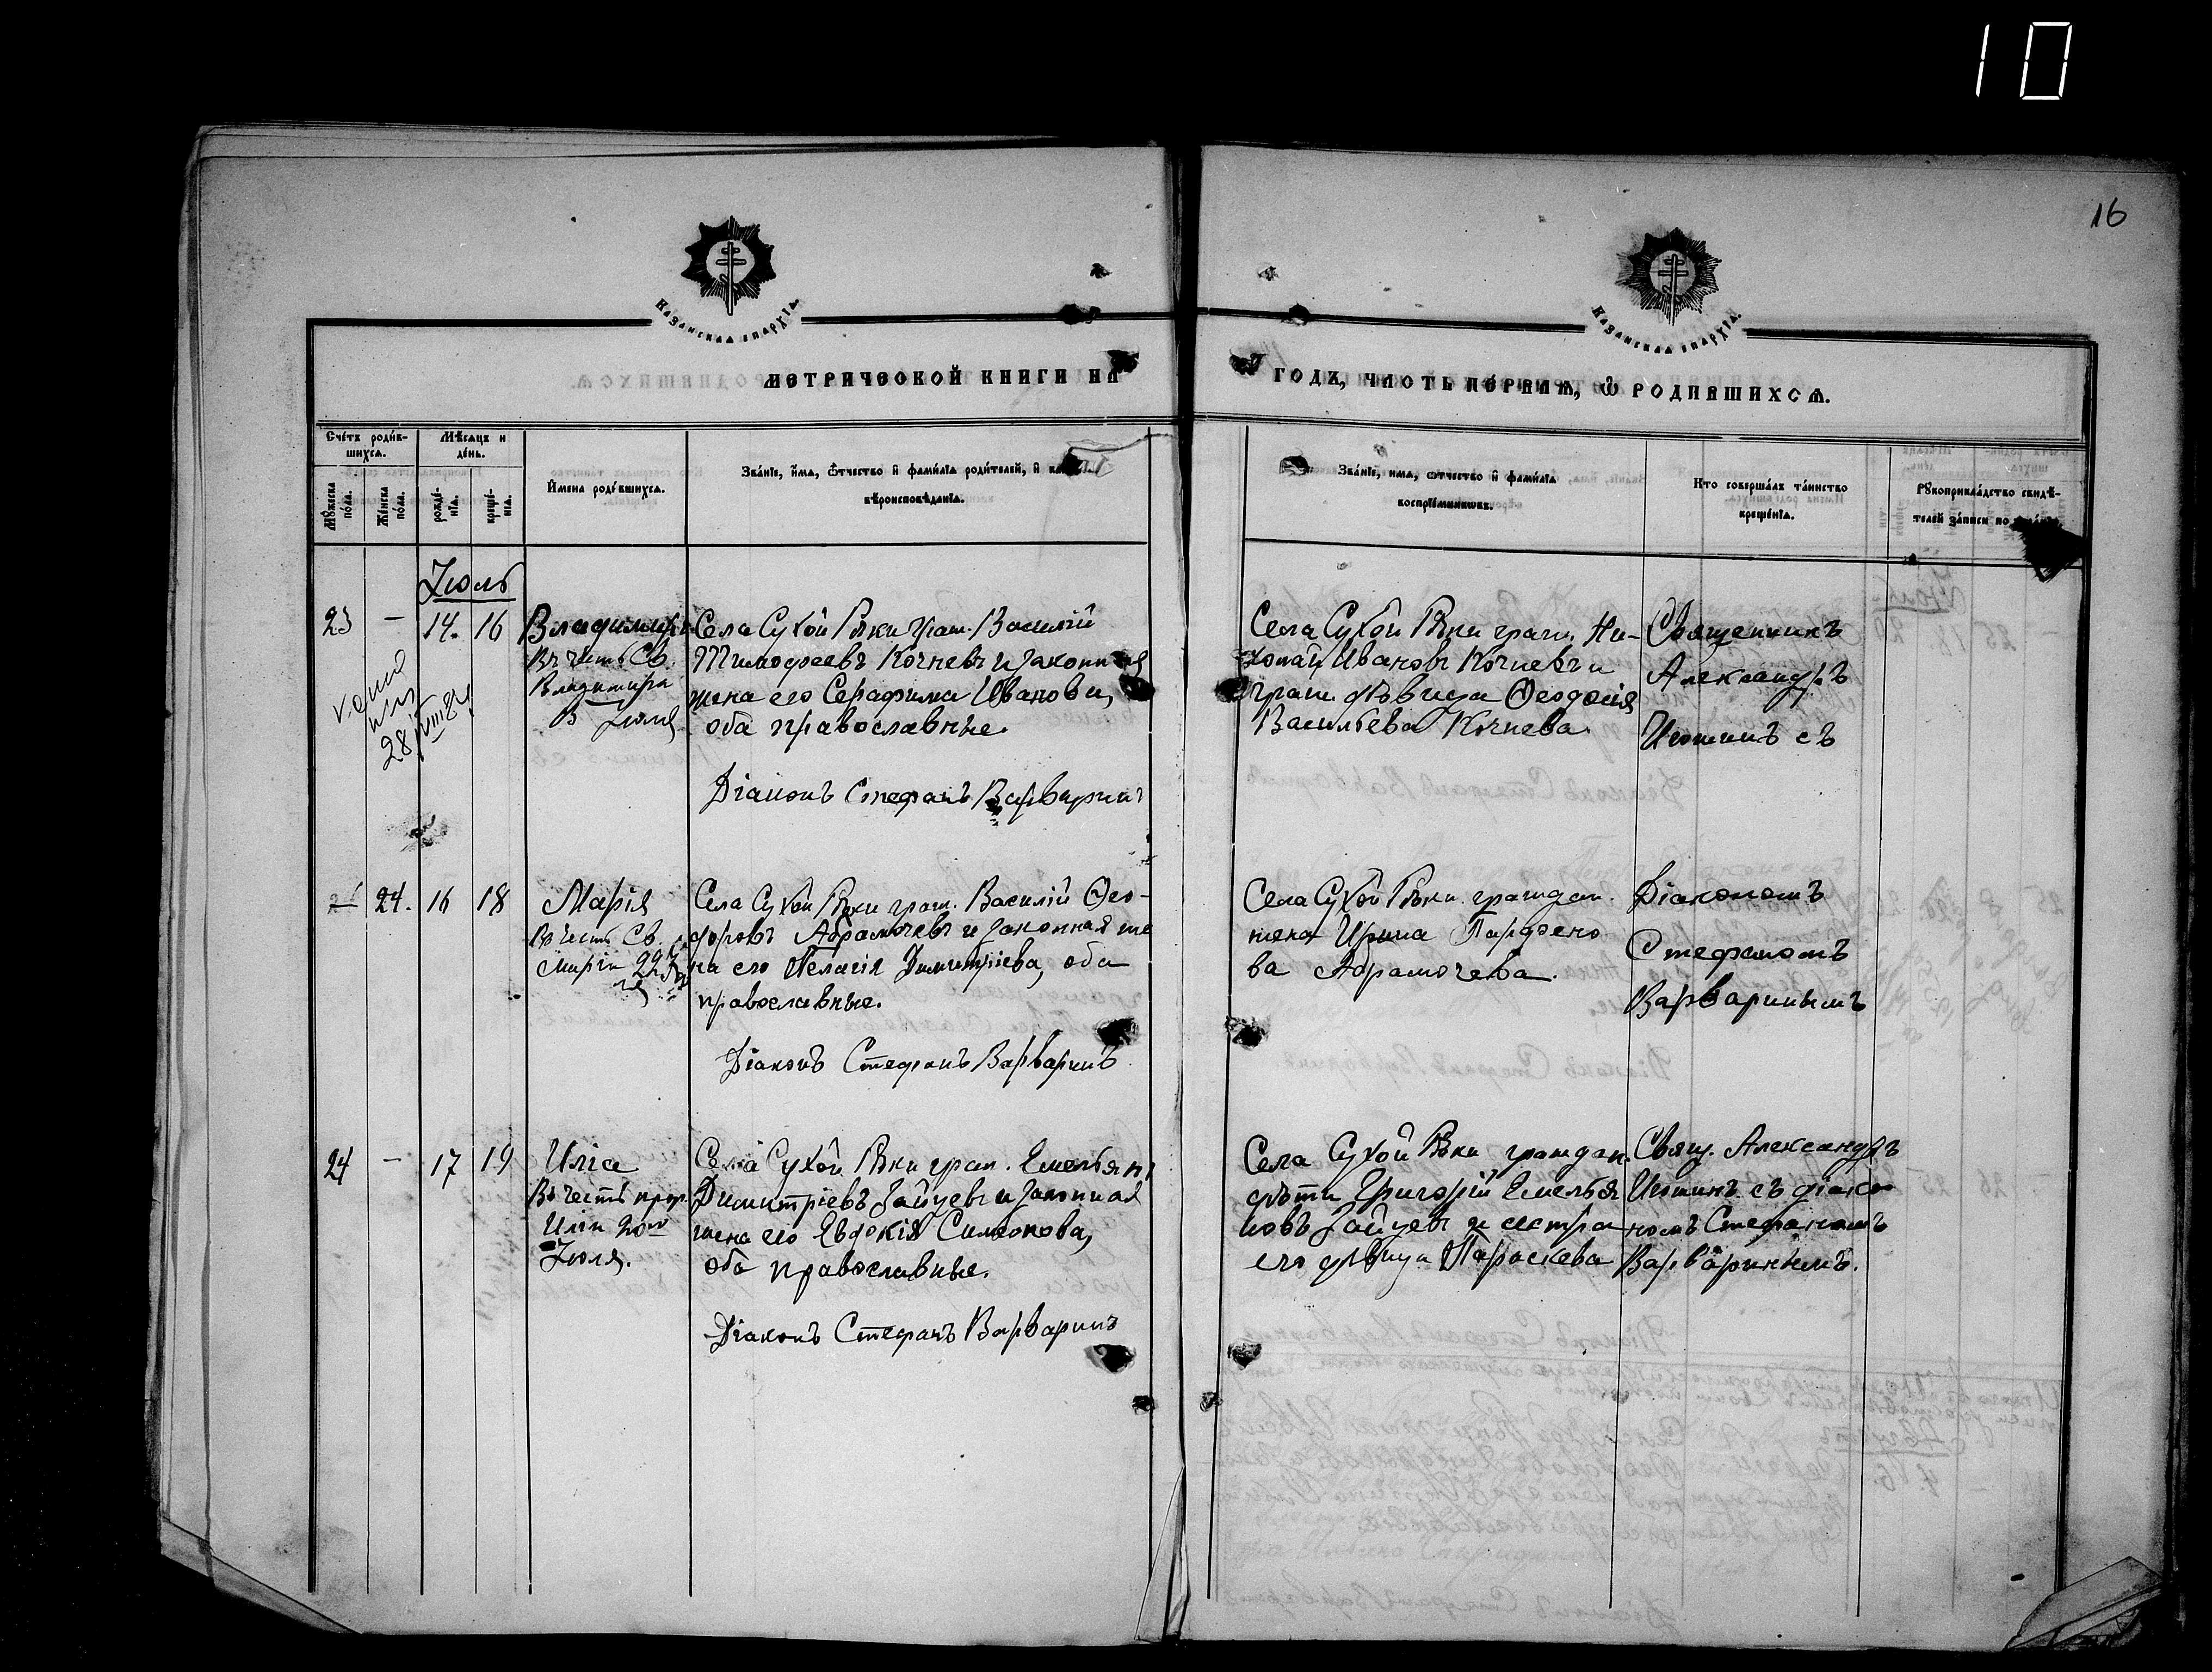 10
16
КАЗАНСКАѦ ЕПАРХІѦ.
КАЗАНСКАѦ ЕПАРХІѦ.
МЕТРИЧЕСКОЙ КНИГИ НА
ГОДЪ, ЧАСТЬ ПЕРВАѦ, Ѽ РОДИВШИХСѦ.
Счетъ родив-
шихсѧ.
Мѣсѧцъ и
день.
Мꙋжеска
пола.
Женска
пола.
рожде-
нїѧ.
креще-
нїѧ.
Имена родившихсѧ.
Званїе, имѧ, ѿчество и фамилїѧ родителей, и
вѣроисповѣданїѧ.
Званїе, имѧ, ѿчество и фамилїѧ
воспрїемниковъ.
Кто совершалъ таинство
крещенїѧ.
Рꙋкоприкладство свидѣ-
телей записи по
Іюль
23 — 14. 16 Владимиръ
Въ честь Св.
Владимира
15 Іюля
28
Села Сухой Рѣки граж. Василій
Тимофеевъ Кочневъ и законная
жена его Серафима Иванова,
оба православные.
Діаконъ Стефанъ Варваринъ
Села Сухой Рѣки граж. Ни-
колай Ивановъ Кочневъ и
граж. дѣвица Ѳеодосія
Васильева Кочнева.
Священникъ
Александръ
съ
24. 16 18 Марія
Въ честь Св.
Маріи 22 Ію
ля
Села Сухой Рѣки граж. Василій Ѳео-
доровъ Абрамочевъ и законная же
на его Пелагія Димитріева, оба
православные.
Діаконъ Стефанъ Варваринъ
Села Сухой Рѣки граждан.
жена Ирина Парфено
ва Абрамочева.
Діакономъ
Стефаномъ
Варваринымъ
24 — 17 19 Илія
Въ честь прор.
Иліи 20го
Іюля.
Села Сухой Рѣки граж. Емельянъ
Димитріевъ Зайцевъ и законная
жена его Евдокія Симеонова,
оба православные.
Діаконъ Стефанъ Варваринъ
Села Сухой Рѣки граждан.
дѣти Григорій Емелья
новъ Зайцевъ и сестра
его дѣвица Параскева
Свящ. Александръ
съ діако
номъ Стефаномъ
Варваринымъ.